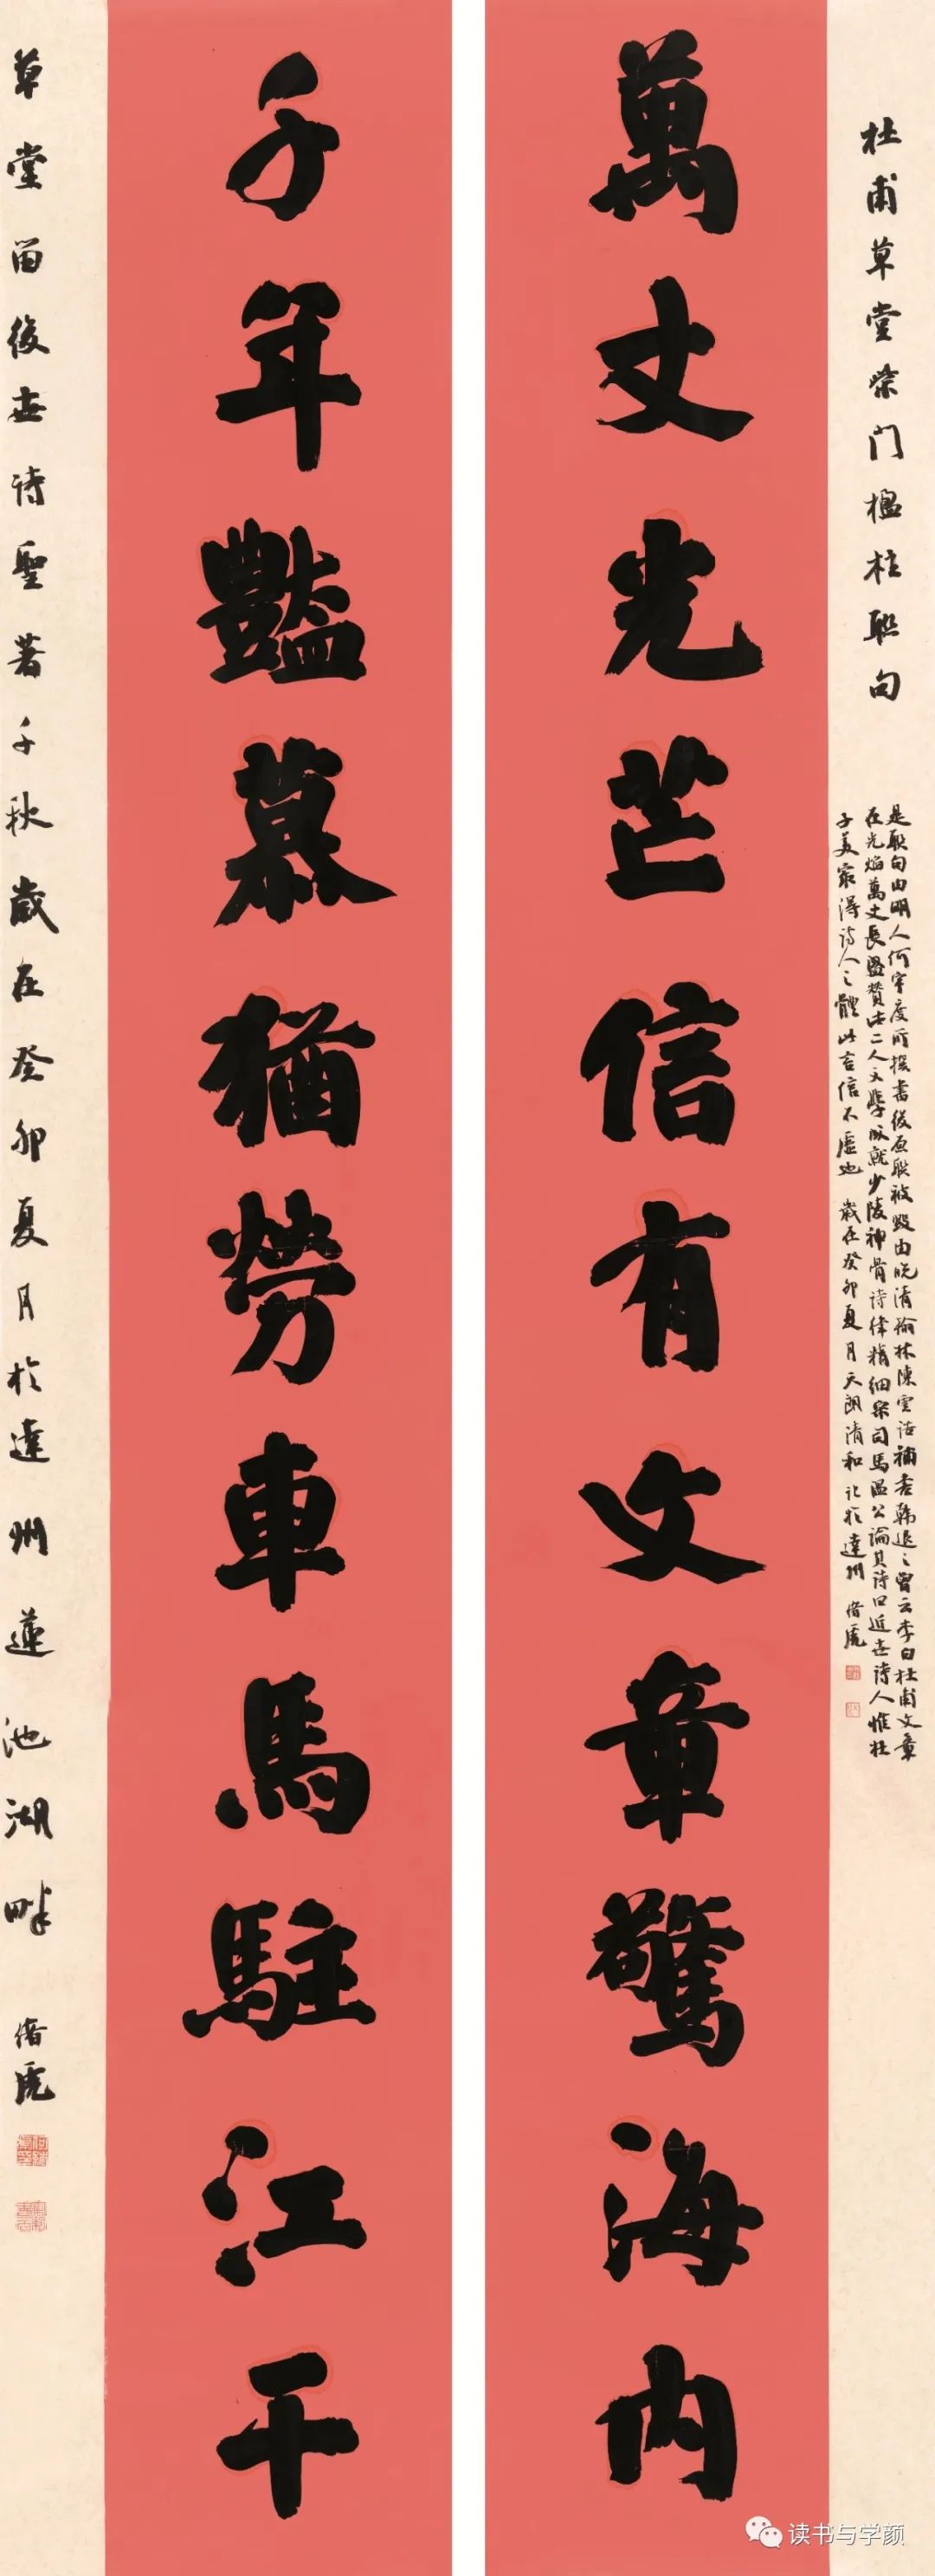 杜甫草堂柴门楹柱联句
是联句由明人何宇度所撰书后原联被毁由晚清榆林陈云诰補书韩退之曾云李白杜甫文章
在光焰萬丈長盛赞法二人文學成就少陵神骨诗律精细宋司馬温公論其诗曰近世诗人惟杜
子美最得诗人之體此言信不虚也 歲在癸卯夏月天朗清和记於達州
萬丈光芒信有文章驚海内
千年豔慕猶勞車馬駐江干
草堂留後世诗聖著千秋歲在癸卯夏月於達州蓮池湖畔
读书与学颜